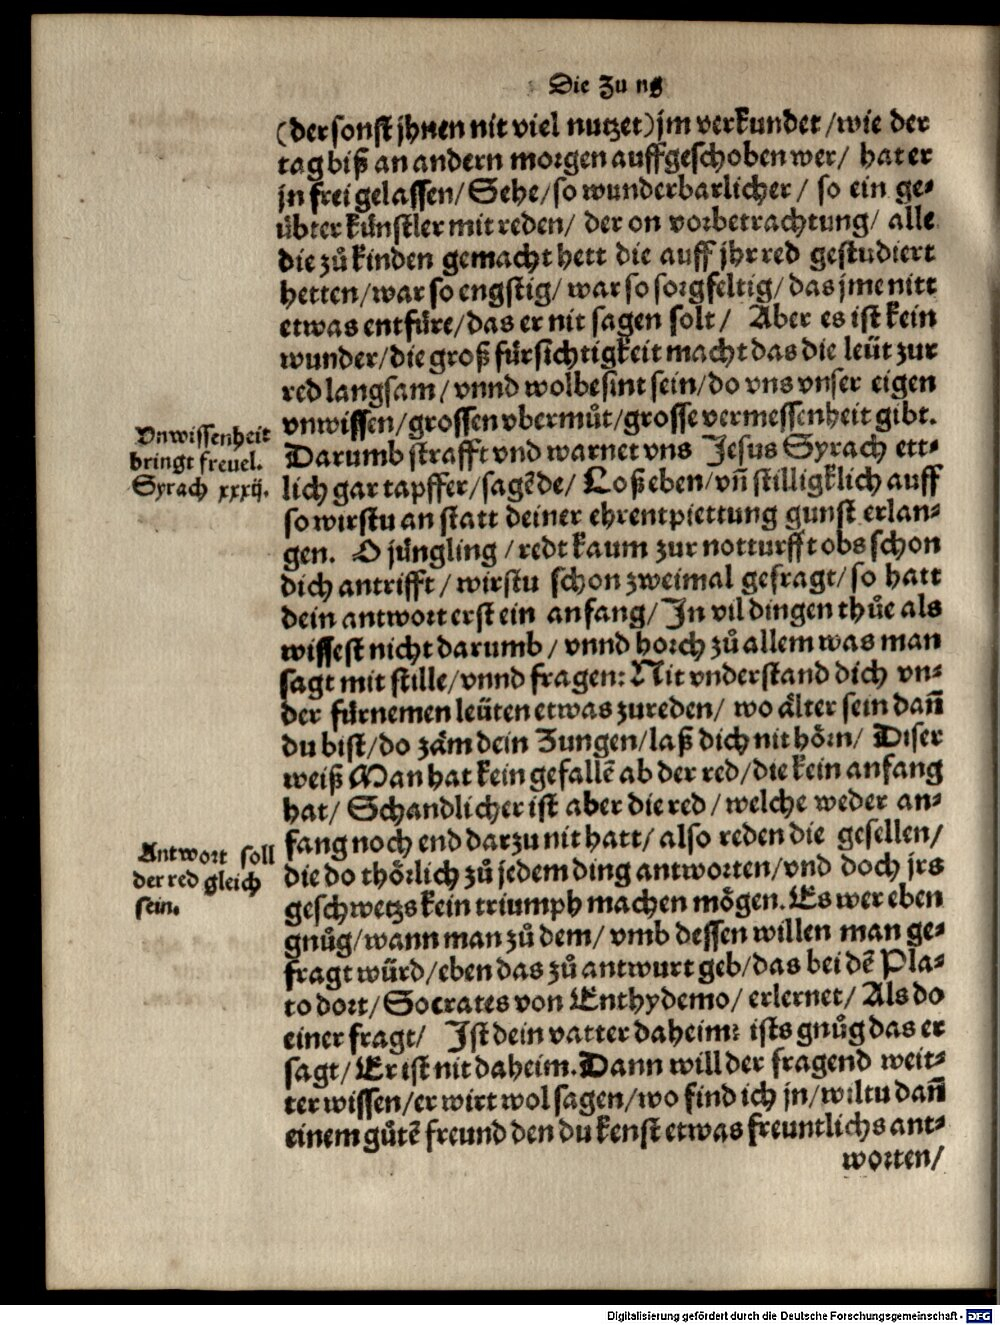 Die Zung
(der sonst jhnen nit viel nutzet) jm verkundet / wie der
tag biß an andern morgen auffgeschoben wer / hat er
jn frei gelassen / Sehe / so wunderbarlicher / so ein ge⸗
übter künstler mit reden / der on vorbetrachtung / alle
die zů kinden gemacht hett die auff jhr red gestudiert
hetten / war so engstig / war so sorgfeltig / das jme nitt
etwas entfüre / das er nit sagen solt / Aber es ist kein
wunder / die groß fürsichtigkeit macht das die leüt zur
red langsam / vnnd wolbesint sein / do vns vnser eigen
vnwissen / grossen vbermůt / grosse vermessenheit gibt.
Vnwissenheit
bringt freuel.
Syrach xxxij.
Darumb strafft vnd warnet vns Jesus Syrach ett⸗
lich gar tapffer / sagẽde / Loß eben / vñ stilligklich auff
so wirstu an statt deiner ehrentpiettung gunst erlan⸗
gen. O jüngling / redt kaum zur notturfft obs schon
dich antrifft / wirstu schon zweimal gefragt / so hatt
dein antwort erst ein anfang / In vil dingen thůe als
wissest nicht darumb / vnnd horch zů allem was man
sagt mit stille / vnnd fragen: Nit vnderstand dich vn⸗
der fürnemen leüten etwas zureden / wo älter sein dañ
du bist / do zäm dein Zungen / laß dich nit hörn / Diser
weiß Man hat kein gefallẽ ab der red / die kein anfang
hat / Schandlicher ist aber die red / welche weder an⸗
fang noch end darzu nit hatt / also reden die gesellen /
Antwort soll
der red gleich
sein.
die do thörlich zů jedem ding antworten / vnd doch jrs
geschwetzs kein triumph machen mögen. Es wer eben
gnůg / wann man zů dem / vmb dessen willen man ge⸗
fragt würd / eben das zů antwurt geb / das bei dẽ Pla⸗
to dort / Socrates von Enthydemo / erlernet / Als do
einer fragt / Ist dein vatter daheim? ists gnůg das er
sagt / Er ist nit daheim. Dann will der fragend weit⸗
ter wissen / er wirt wol sagen / wo find ich jn / wiltu dañ
einem gůtẽ freund den du kenst etwas freuntlichs ant⸗
worten /
Digitalisierung gefördert durch die Deutsche Forschungsgemeinschaft - DFG